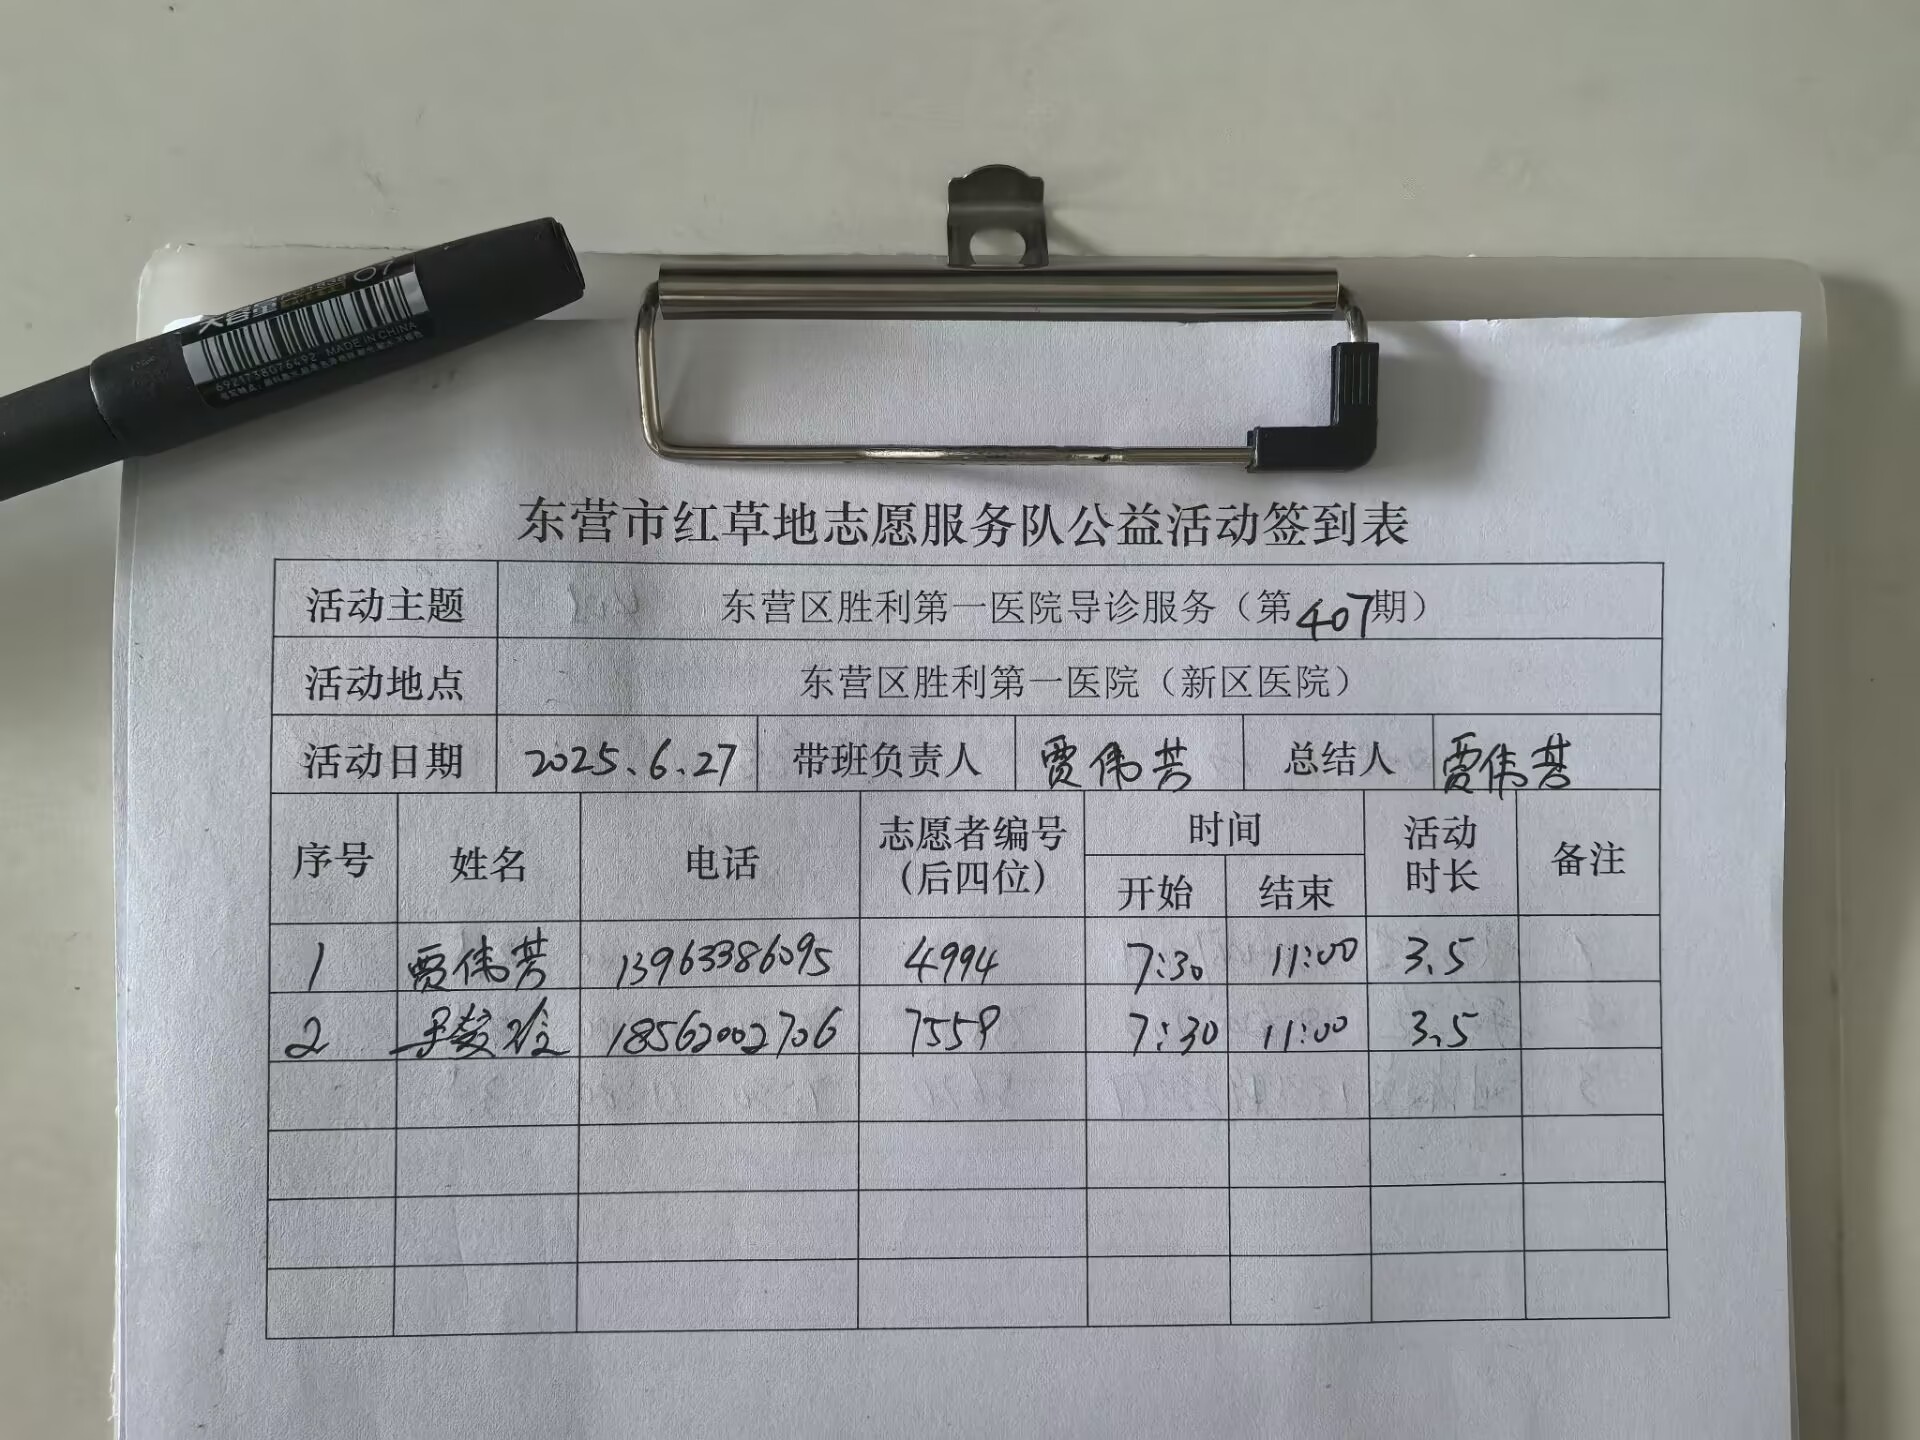 大容量
07
6921738076492 MADE IN CHINA
东营市红草地志愿服务队公益活动签到表
活动主题 东营区胜利第一医院导诊服务（第407期）
活动地点 东营区胜利第一医院（新区医院）
活动日期 2025.6.27 带班负责人 贾伟芸 总结人 贾伟芸
序号 姓名 电话 志愿者编号（后四位） 时间 开始 结束 活动时长 备注
1 贾伟芸 13963386095 4994 7:30 11:00 3.5
2 18562002706 7559 7:30 11:00 3.5